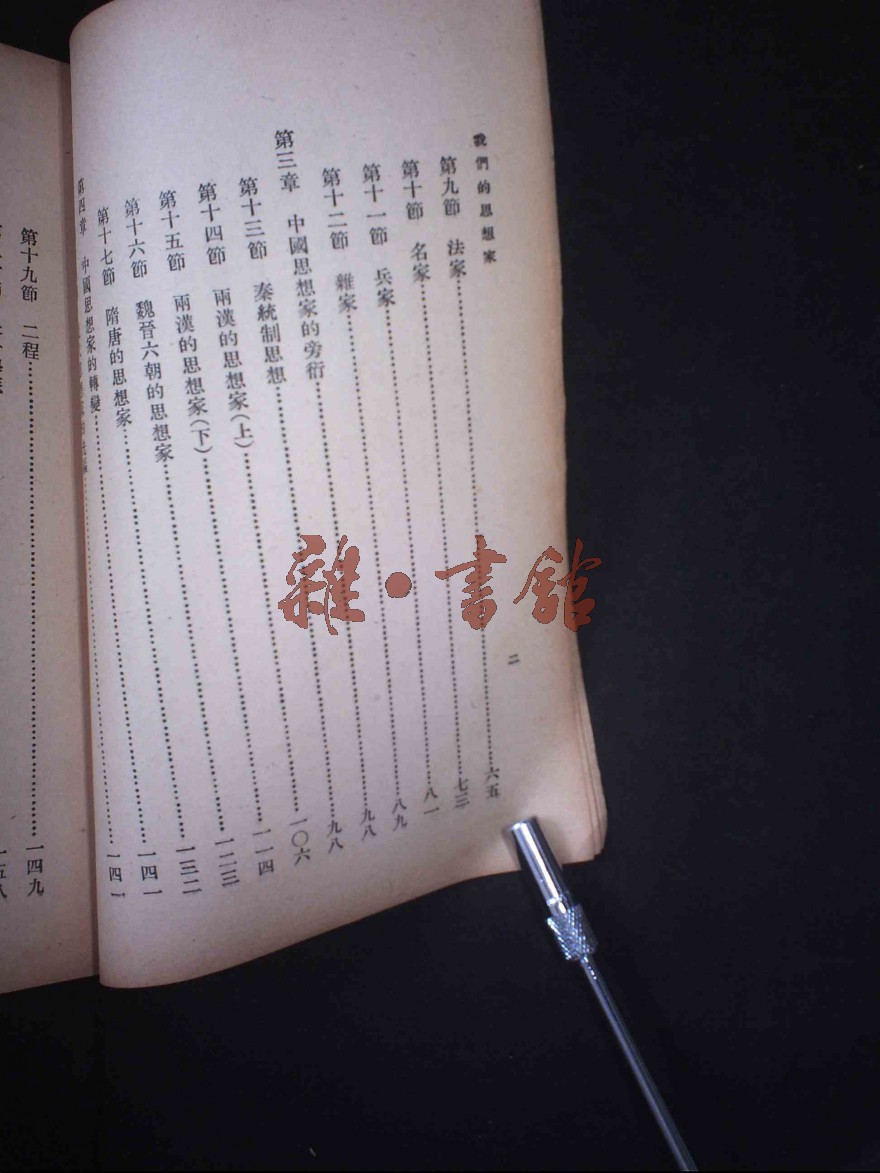 我們的思想家
二
第九節 法家……六五
第十節 名家……七三
第十一節 兵家……八一
第十二節 雜家……八九
第三章 中國思想家的旁衍……九八
第十三節 秦統制思想……九八
第十四節 兩漢的思想家(上)……一〇六
第十五節 兩漢的思想家(下)……一一四
第十六節 魏晉六朝的思想家……一二三
第十七節 隋唐的思想家……一三二
第四章 中國思想家的轉變……一四一
……一四
第十九節 二程……一四九
一五八
雜·書館